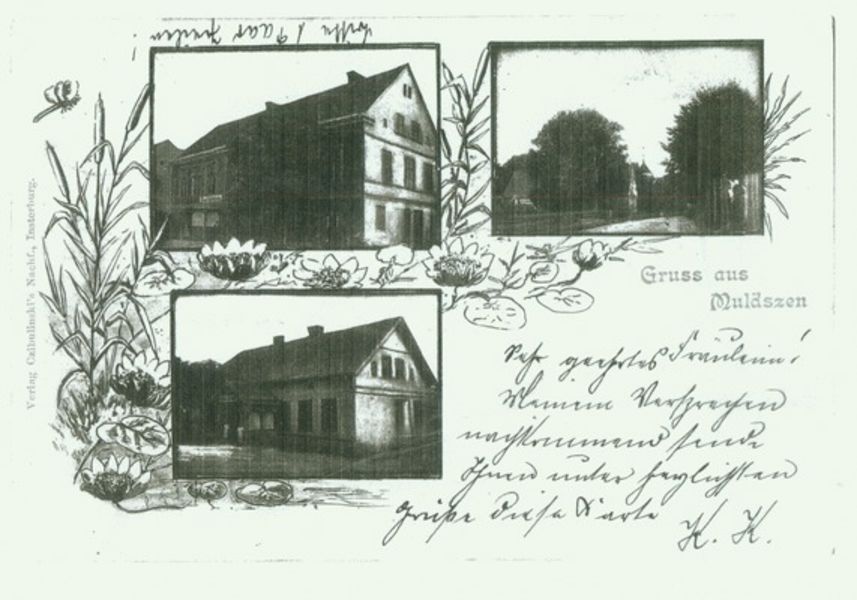 Bitte 1 Paar Zeilen!
Verlag Czibulinski's Nachf., Insterburg.
Gruss aus
Muldszen
Sehr geehrtes Fräulein!
Meinem Versprechen
nachkommend sende
Ihnen unter herzlichsten
Grüße diese Karte
K. K.